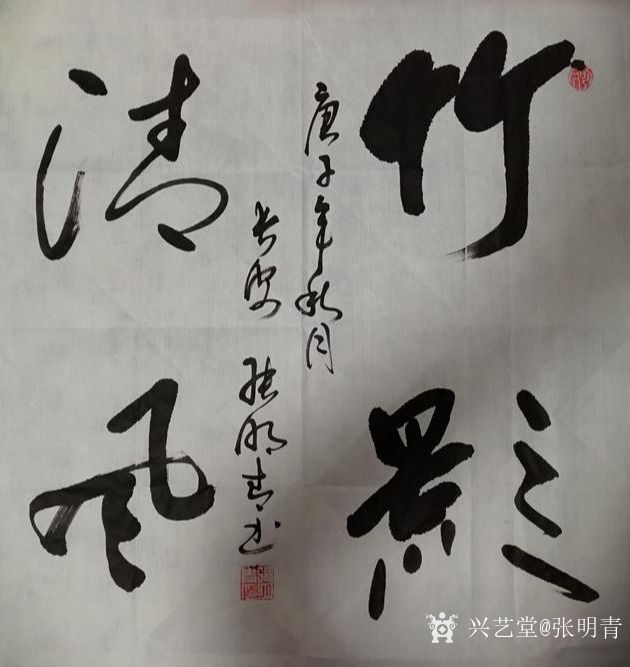 竹影
清风
庚子年秋月
长安 张明青书
兴艺堂@张明青